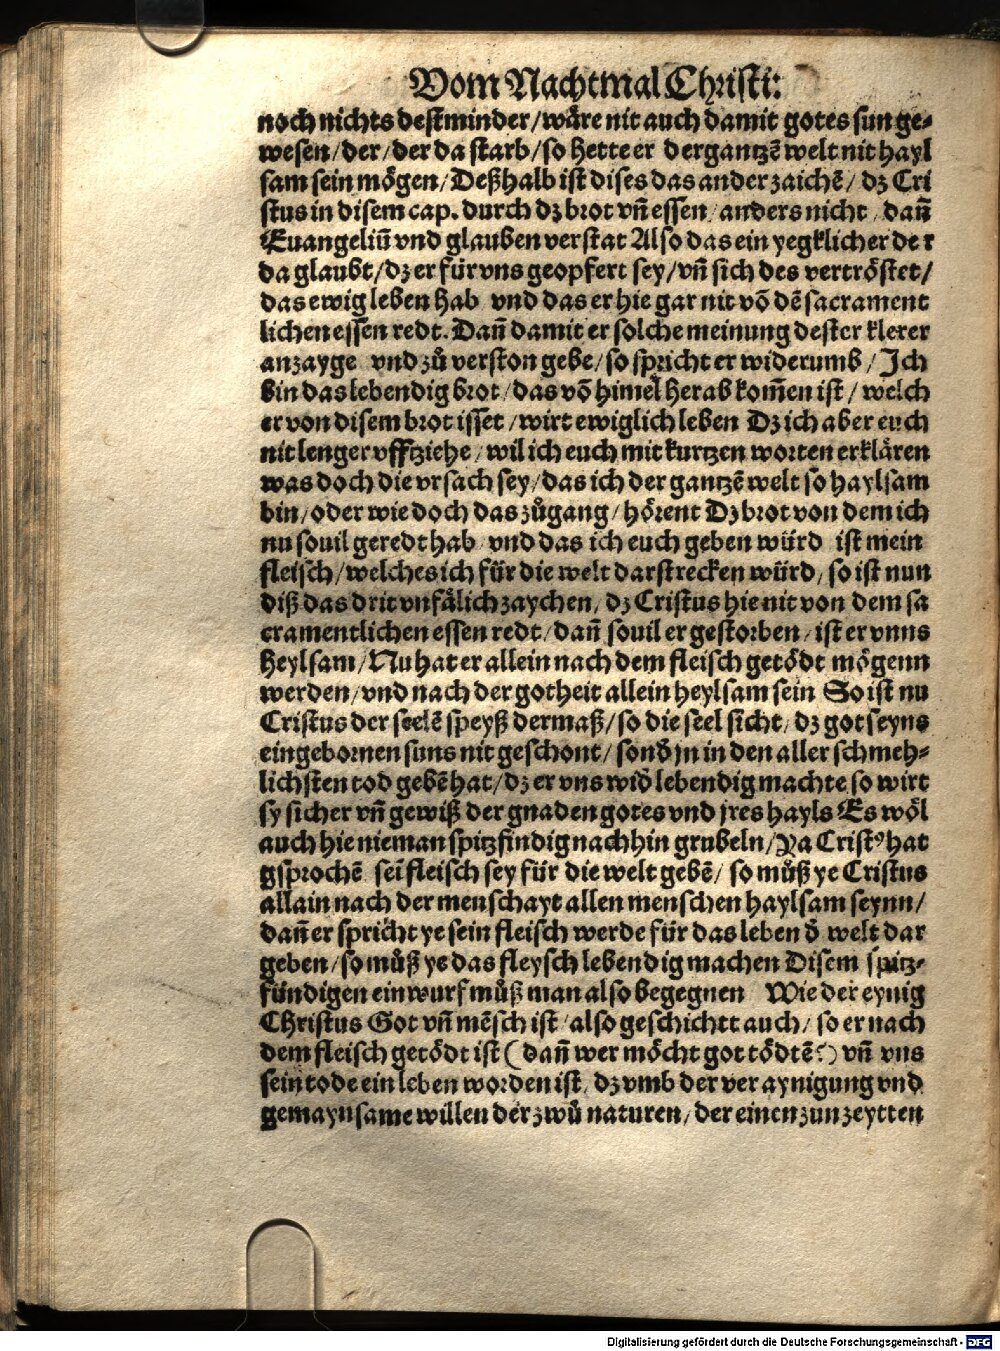 Vom Nachtmal Christi:
noch nichts destminder/wäre nit auch damit gotes sun ge-
wesen/der/der da starb/so hette er dergantzē welt nit hayl
sam sein mögen/Deßhalb ist dises das ander zaichē/ dz Cri
stus in disem cap. durch dz brot vñ essen/anders nicht/dañ
Euangeliū vnd glauben verstat Also das ein yegklicher der
da glaubt/dz er für vns geopfert sey/vñ sich des vertröstet/
das ewig leben hab vnd das er hie gar nit vō dē sacrament
lichen essen redt. Dañ damit er solche meinung dester klerer
anzayge vnd zů verston gebe/so spricht er widerumb/Ich
bin das lebendig brot/das vō himel herab kom̄en ist/welch
er von disem brot isset/wirt ewiglich leben Dz ich aber euch
nit lenger vfftziehe/wil ich euch mit kurtzen worten erklären
was doch die vrsach sey/das ich der gantzē welt so haylsam
bin/oder wie doch das zůgang/hörent Dz brot von dem ich
nu souil geredt hab vnd das ich euch geben würd ist mein
fleisch/welches ich für die welt darstrecken würd/so ist nun
diß das drit vnfälich zaychen/dz Cristus hie nit von dem sa
cramentlichen essen redt/dañ souil er gestorben/ist er vnns
heylsam/Nu hat er allein nach dem fleisch getödt mögenn
werden/vnd nach der gotheit allein heylsam sein So ist nu
Cristus der seelē speyß dermaß/so die seel sicht/dz got seyns
eingebornen suns nit geschont/sonď jn in den aller schmeh-
lichsten tod gebē hat/dz er vns wiď lebendig machte so wirt
sy sicher vñ gewiß der gnaden gotes vnd jres hayls Es wöl
auch hie nieman spitzfindig nachhin grubeln/Ya Cristꝰ hat
gsprochē sei fleisch sey für die welt gebē/so můß ye Cristus
allain nach der menschayt allen menschen haylsam seynn/
dañ er spricht ye sein fleisch werde für das leben ď welt dar
geben/so můß ye das fleysch lebendig machen Disem spitz-
fündigen einwurf můß man also begegnen Wie der eynig
Christus Got vñ mēsch ist/also geschichtt auch/so er nach
dem fleisch getödt ist (dañ wer möcht got tödtē?) vñ vns
sein tode ein leben worden ist/dz vmb der veraynigung vnd
gemaynsame willen der zwů naturen/der einen zun zeytten
Digitalisierung gefördert durch die Deutsche Forschungsgemeinschaft - DFG